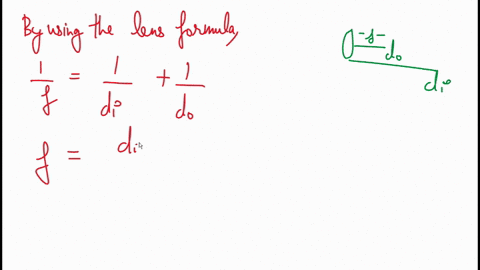 By using the lens formula,
1/f = 1/di + 1/do
f = di
-f-
do
di